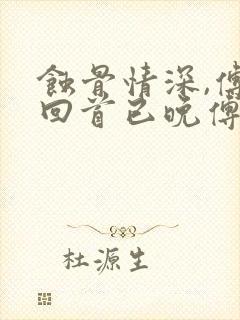 蚀骨情深,傅
回首已晚傅
杜源生